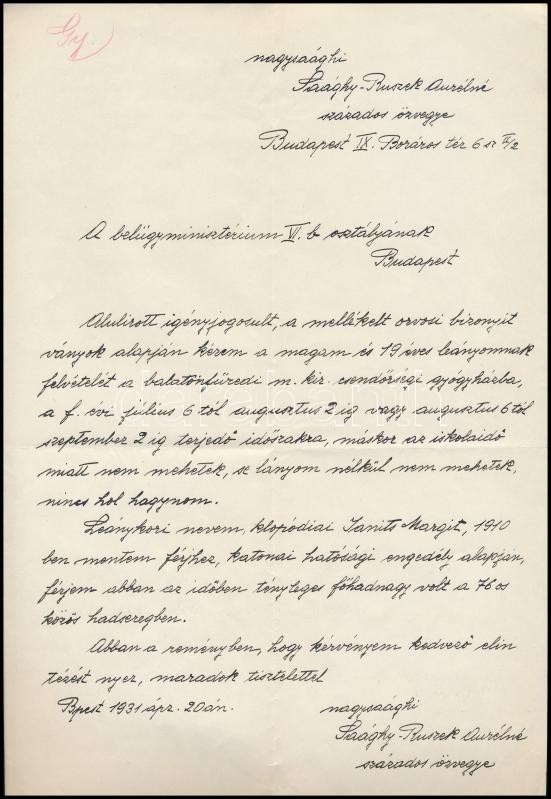 Gy.
nagysaághi
Saághy-Ruszek Aurélné
százados özvegye
Budapest IX. Boráros tér 6 sz II/2
A belügyminisztérium VI. b osztályának
Budapest
Alulirott igényjogosult, a mellékelt orvosi bizonyit
ványok alapján kérem a magam és 19 éves leányomnak
felvételét a balatonfüredi m. kir. csendőrségi gyógyházba,
a f. évi július 6 tól augusztus 2 ig vagy augusztus 6 tól
szeptember 2 ig terjedő időszakra, máskor az iskolaidő
miatt nem mehetek, se lányom nélkül nem mehetek,
nincs hol hagynom.
Leánykori nevem, klopódiai Janits Margit, 1910
ben mentem férjhez, katonai hatósági engedély alapján,
férjem abban az időben tényleges főhadnagy volt a 76 os
közös hadseregben.
Abban a reményben, hogy kérvényem kedvező elin
tézést nyer, maradok tisztelettel
Bpest 1931 ápr. 20 án.
nagysaághi
Saághy-Ruszek Aurélné
százados özvegye
darabanth